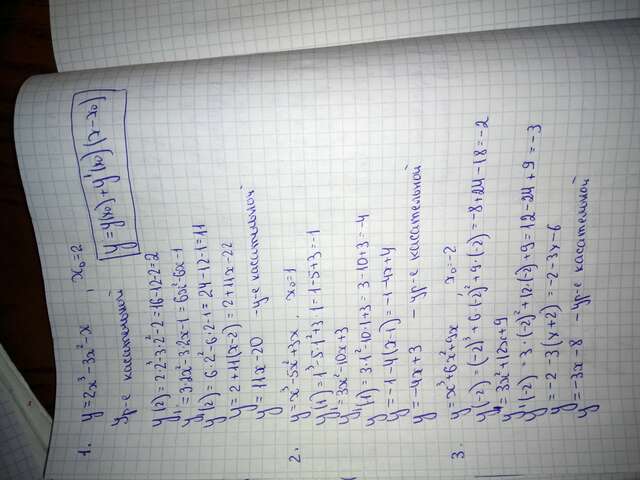 1. y=2x³-3x²-x, x₀=2
Ур-е касательной y=y(x₀)+y'(x₀)(x-x₀)
y(2)=2·2³-3·2²-2=16-12-2=2
y'=3·2x²-3·2x-1=6x²-6x-1
y'(2)=6·2²-6·2-1=24-12-1=11
y=2+11(x-2)=2+11x-22
y=11x-20 -у-е касательной
2. y=x³-5x²+3x, x₀=1
y(1)=1³-5·1²+3·1=1-5+3=-1
y'=3x²-10x+3
y'(1)=3·1²-10·1+3=3-10+3=-4
y=-1-4(x-1)=-1-4x+4
y=-4x+3 - ур-е касательной
3. y=x³+6x²+9x x₀=-2
y(-2)=(-2)³+6·(-2)²+9·(-2)=-8+24-18=-2
y'=3x²+12x+9
y'(-2)=3·(-2)²+12·(-2)+9=12-24+9=-3
y=-2-3(x+2)=-2-3x-6
y=-3x-8 -ур-е касательной